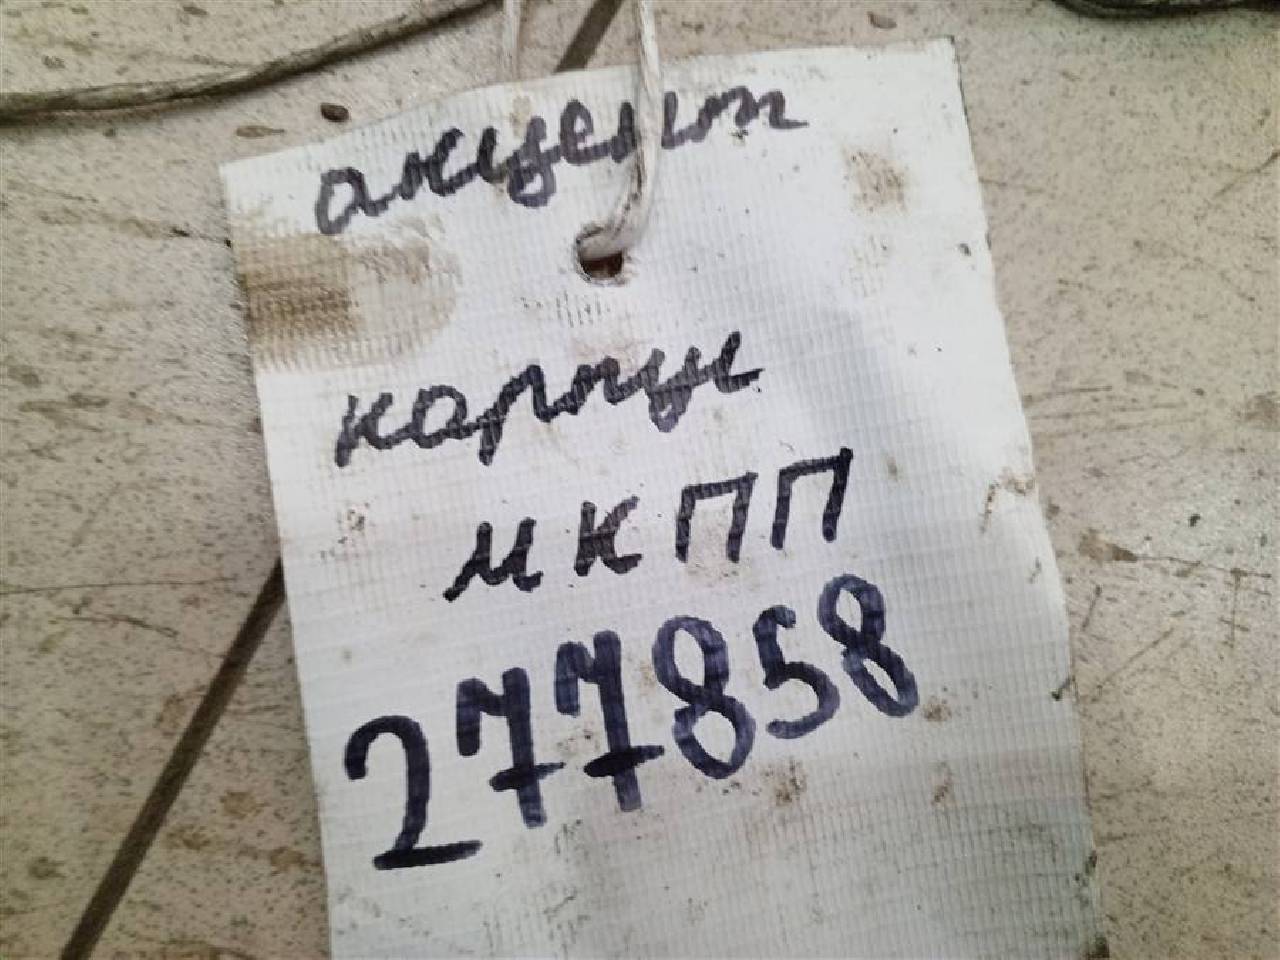 акцент
корпус
МКПП
277858